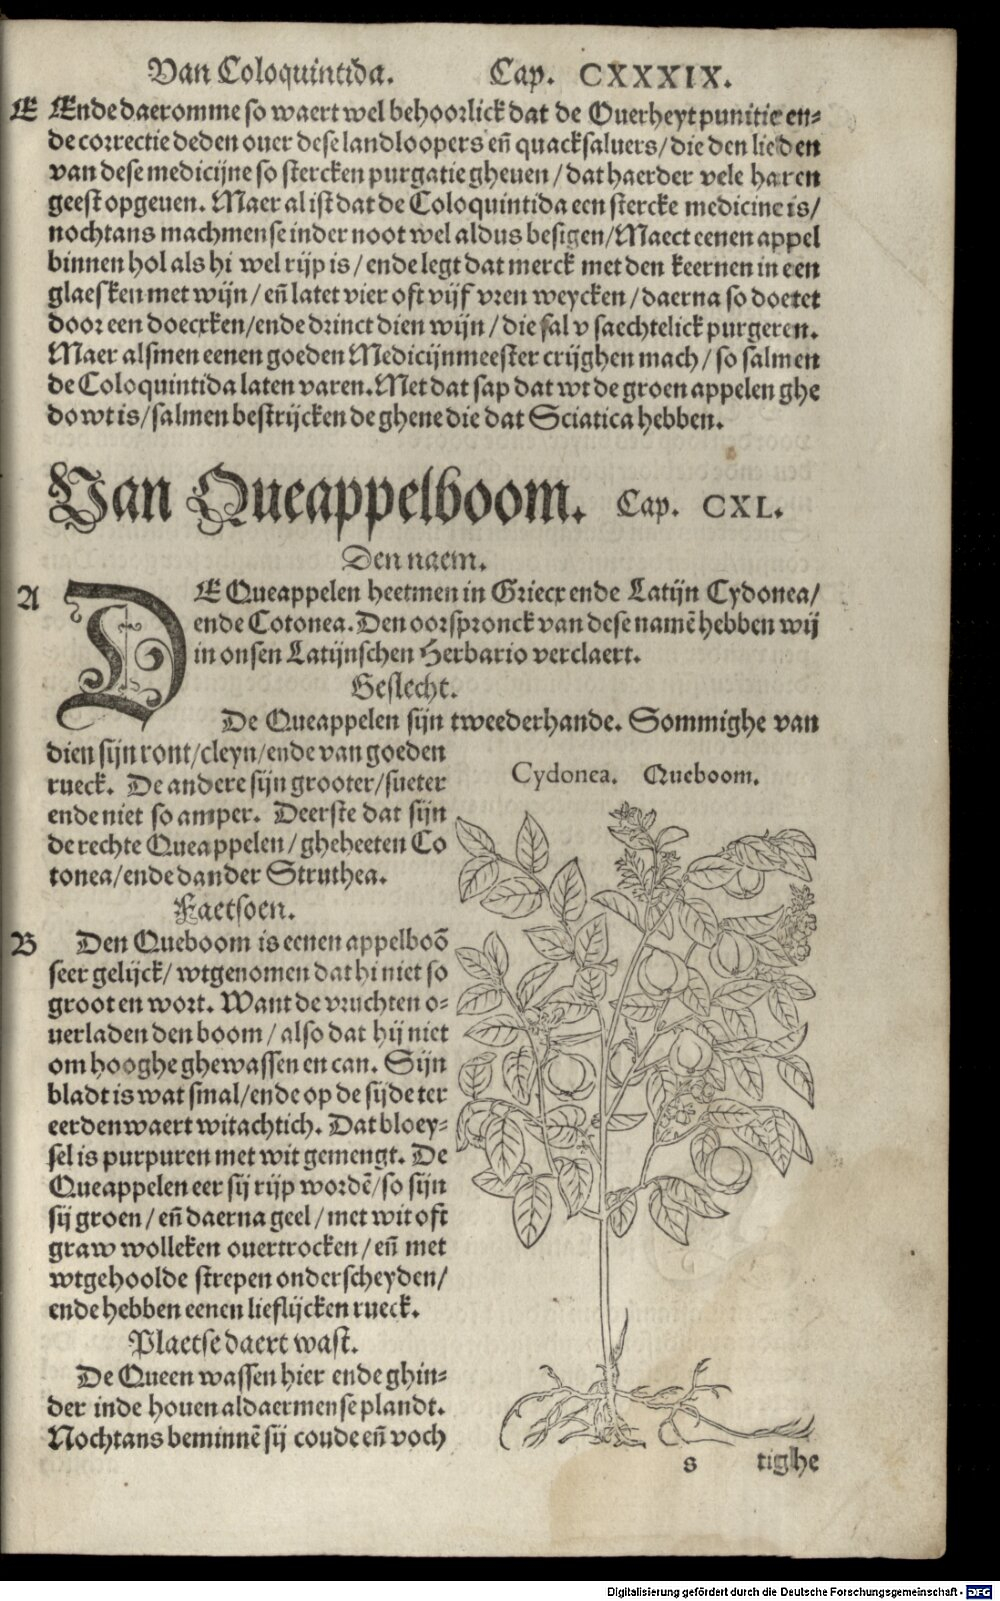 Van Coloquintida. Cap. CXXXIX.
E Ende daeromme so waert wel behoorlick dat de Ouerheyt punitie en⸗
de correctie deden ouer dese landloopers eñ quacksaluers/ die den lieden
van dese medicijne so stercken purgatie gheuen/ dat haerder vele haren
geest opgeuen. Maer al ist dat de Coloquintida een stercke medicine is/
nochtans machmense inder noot wel aldus besigen/ Maect eenen appel
binnen hol als hi wel rijp is/ ende legt dat merck met den keernen in een
glaesken met wijn/ eñ latet vier oft vijf vren weycken/ daerna so doetet
door een doecxken/ ende drinct dien wijn/ die sal v saechtelick purgeren.
Maer alsmen eenen goeden Medicijnmeester crijghen mach/ so salmen
de Coloquintida laten varen. Met dat sap dat wt de groen appelen ghe
dowt is/ salmen bestrijcken de ghene die dat Sciatica hebben.
Van Queappelboom. Cap. CXL.
Den naem.
A DE Queappelen heetmen in Griecx ende Latijn Cydonea/
ende Cotonea. Den oorspronck van dese namē hebben wij
in onsen Latijnschen Herbario verclaert.
Geslecht.
De Queappelen sijn tweederhande. Sommighe van
dien sijn ront/ cleyn/ ende van goeden
rueck. De andere sijn grooter/ sueter
ende niet so amper. Deerste dat sijn
de rechte Queappelen/ gheheeten Co
tonea/ ende dander Struthea.
Faetsoen.
B Den Queboom is eenen appelboō
seer gelijck/ wtgenomen dat hi niet so
groot en wort. Want de vruchten o⸗
uerladen den boom/ also dat hij niet
om hooghe ghewassen en can. Sijn
bladt is wat smal/ ende op de sijde ter
eerden waert witachtich. Dat bloey⸗
sel is purpuren met wit gemengt. De
Queappelen eer sij rijp wordē/ so sijn
sij groen/ eñ daerna geel/ met wit oft
graw wolleken ouertrocken/ eñ met
wtgehoolde strepen onderscheyden/
ende hebben eenen lieflijcken rueck.
Plaetse daert wast.
De Queen wassen hier ende ghin⸗
der inde houen aldaermense plandt.
Nochtans beminnē sij coude eñ voch
Cydonea. Queboom.
s tighe
Digitalisierung gefördert durch die Deutsche Forschungsgemeinschaft - DFG